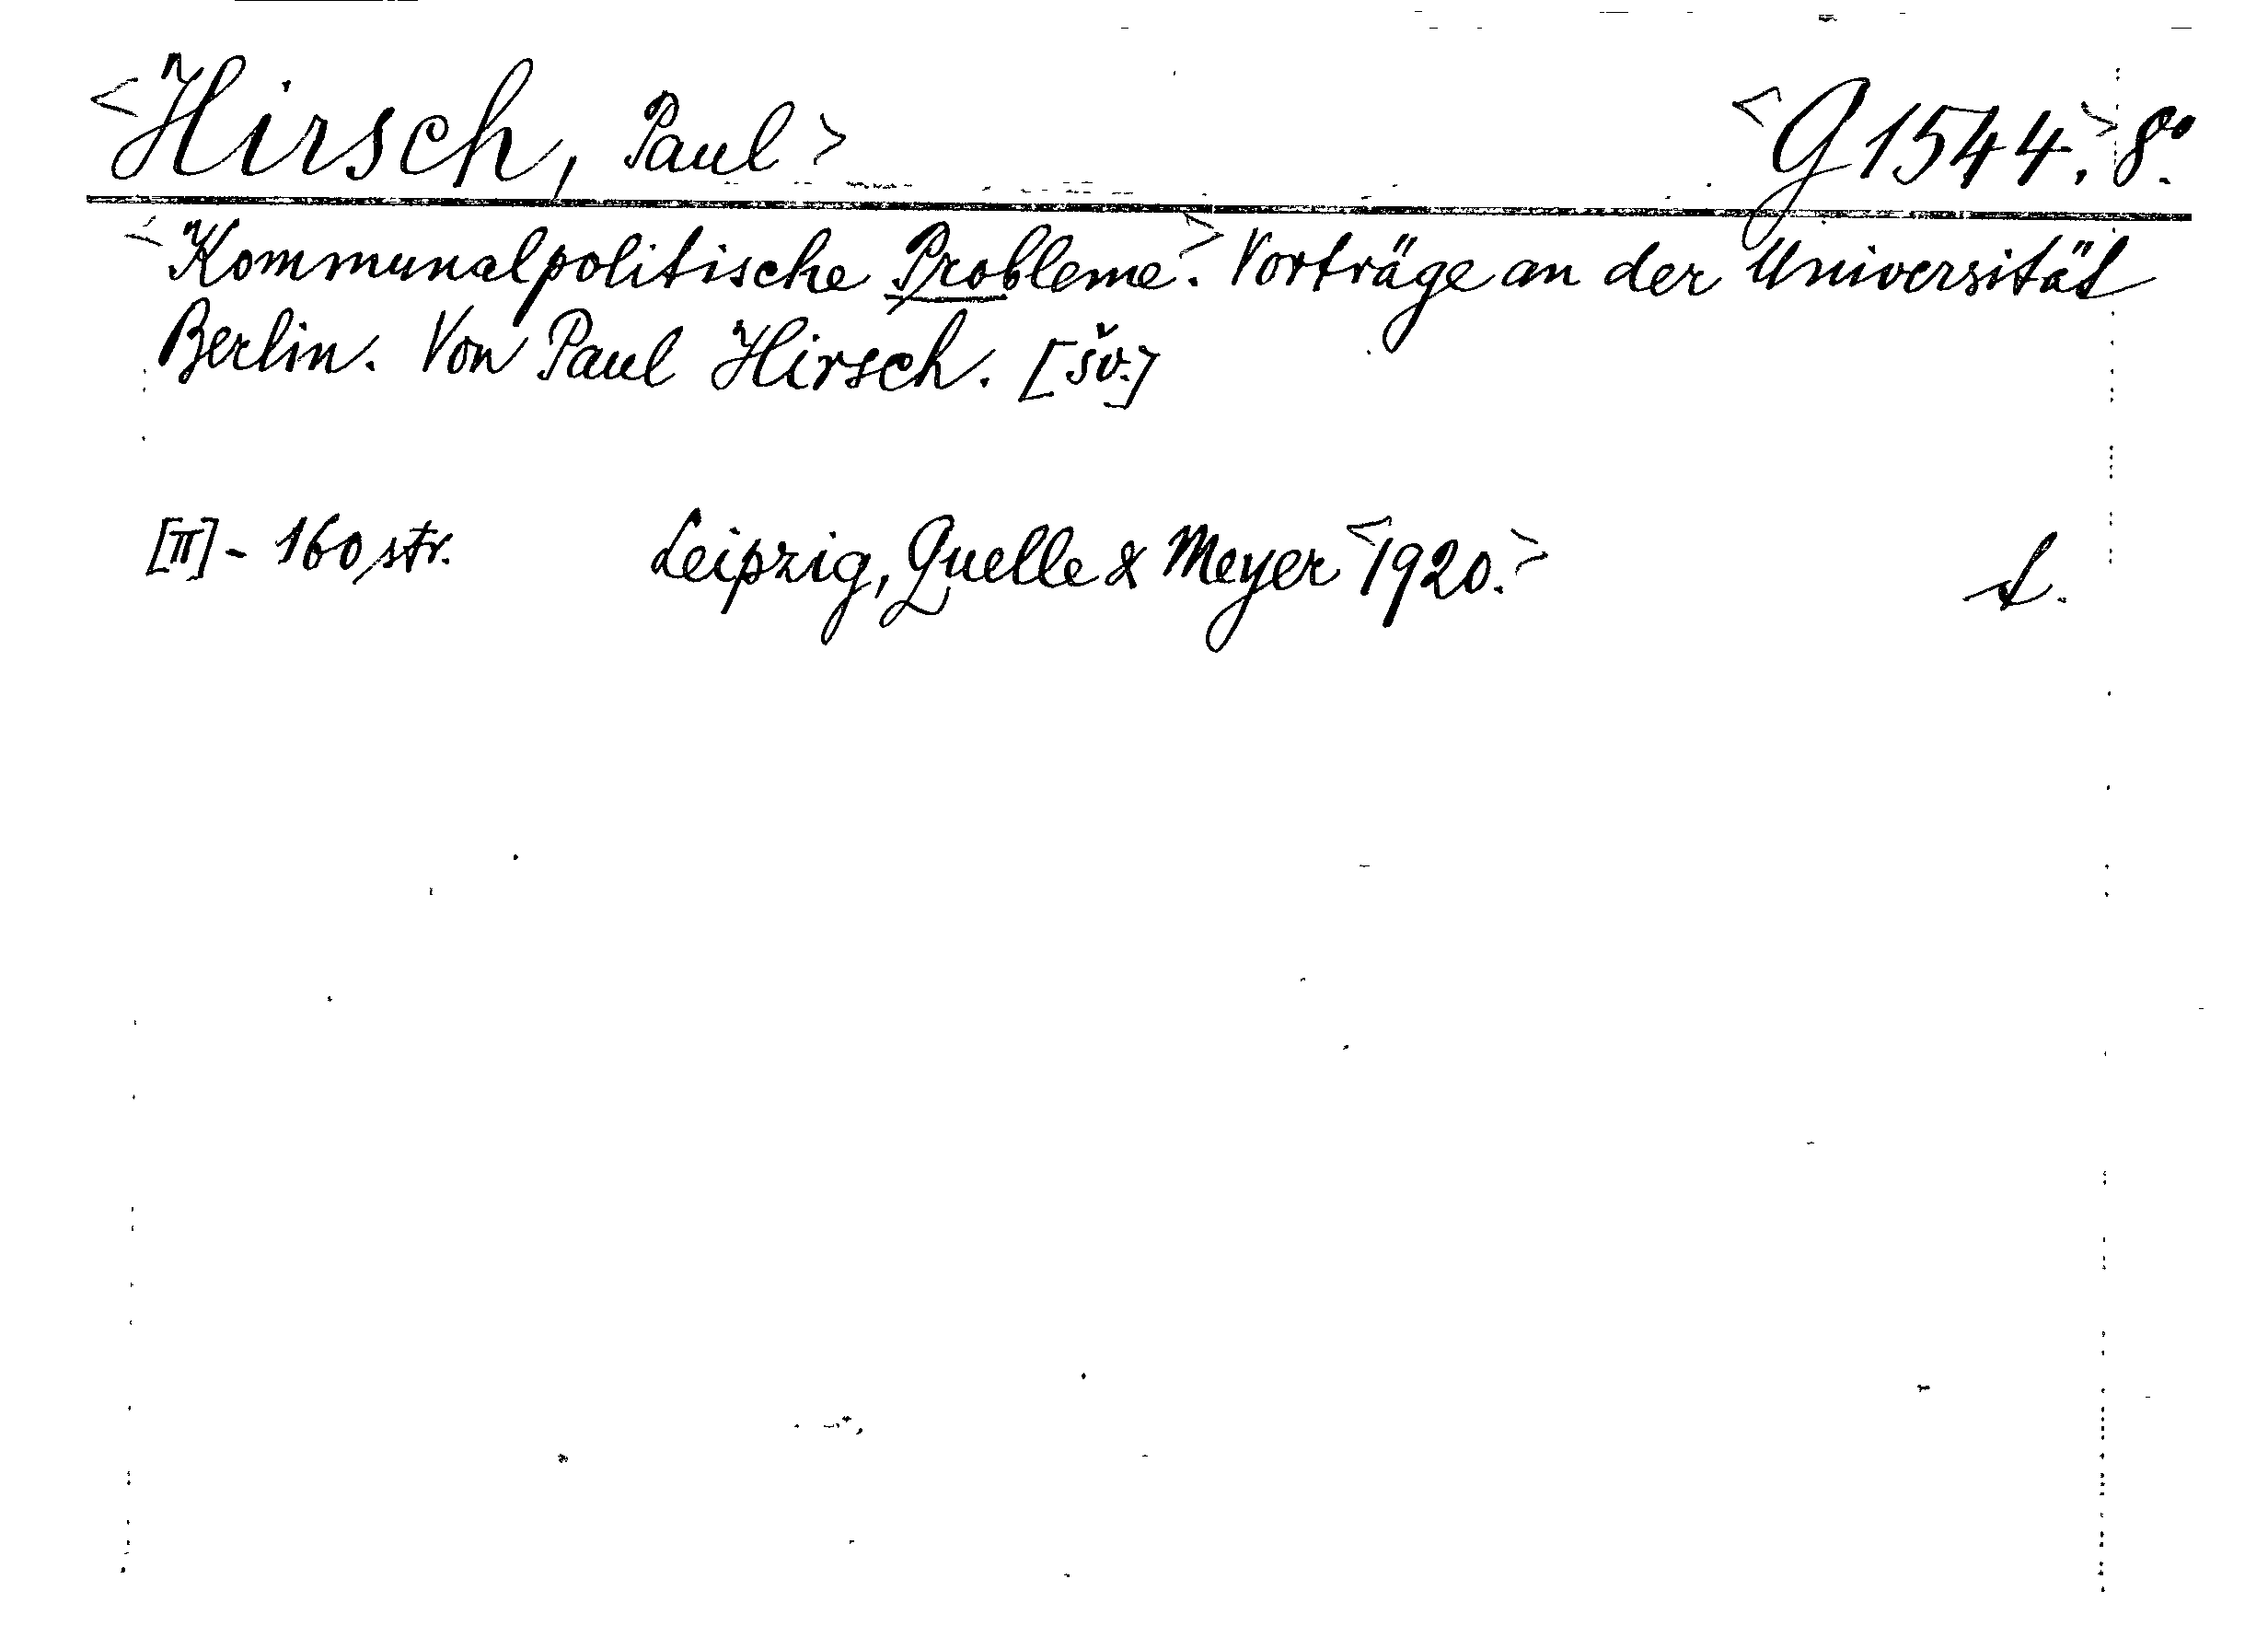 <Hirsch, Paul> <G 1544.> 8°.
<Kommunalpolitische Probleme.> Vorträge an der Universität
Berlin. Von Paul Hirsch. [šv.]
[II] - 160 str. Leipzig, Quelle & Meyer <1920.>